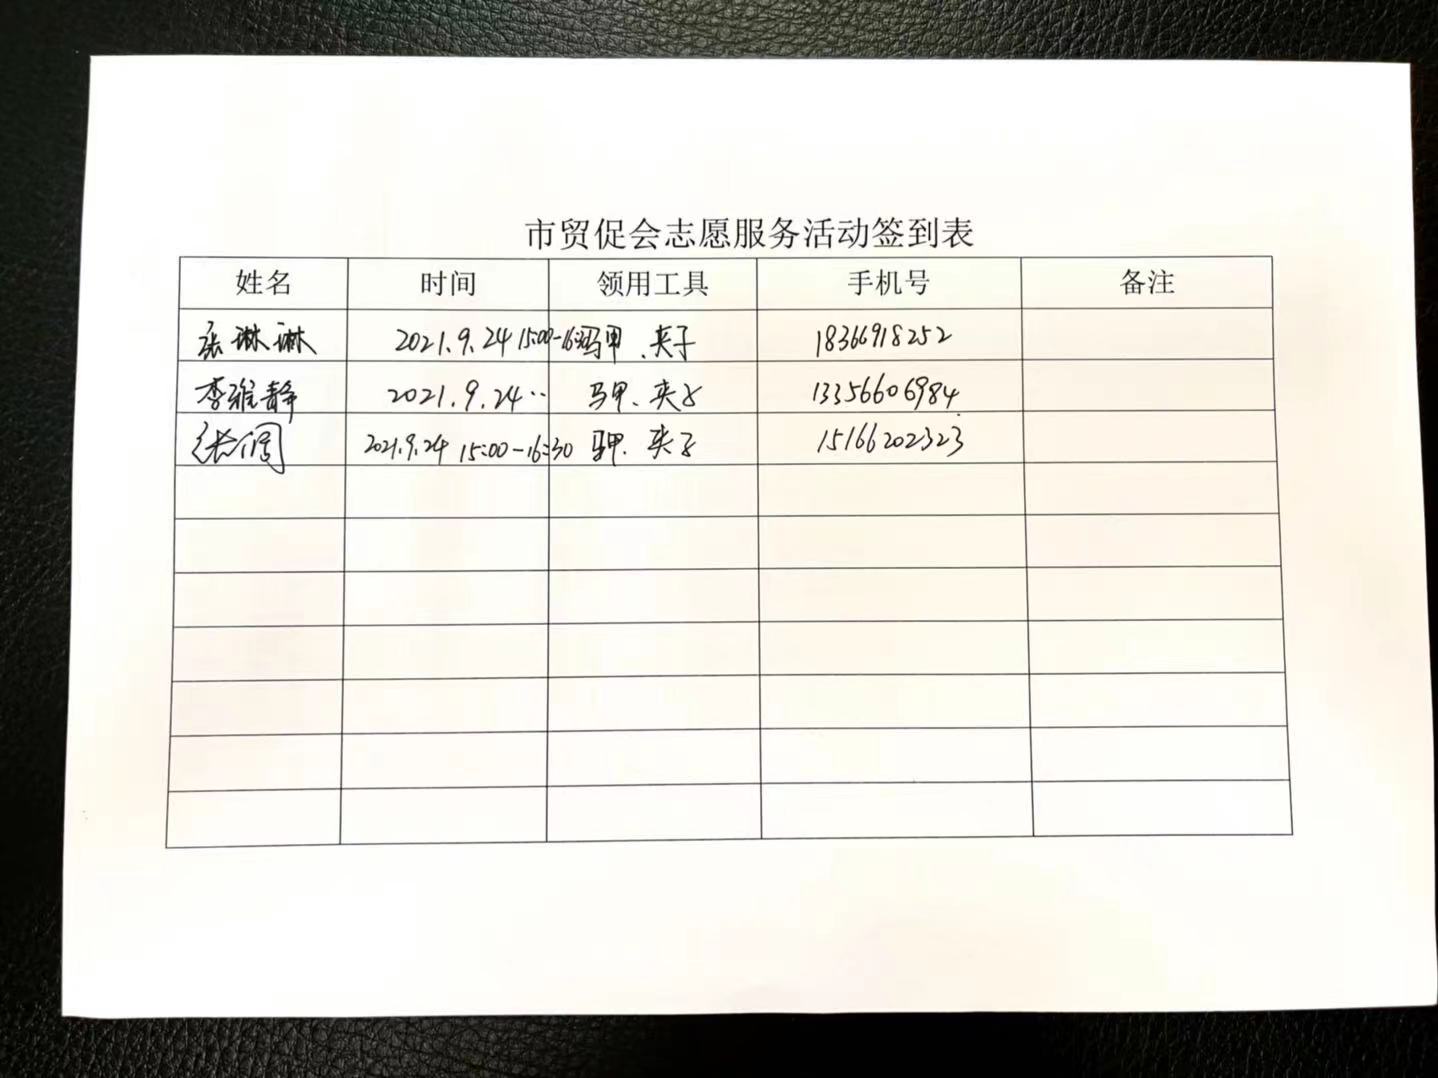 市贸促会志愿服务活动签到表
姓名 时间 领用工具 手机号 备注
张琳琳 2021.9.24 15:00-16: 马甲、夹子 18366918252
李雅静 2021.9.24 ·· 马甲、夹子 13356606984
张 2021.9.24 15:00-16:30 马甲、夹子 15166202323